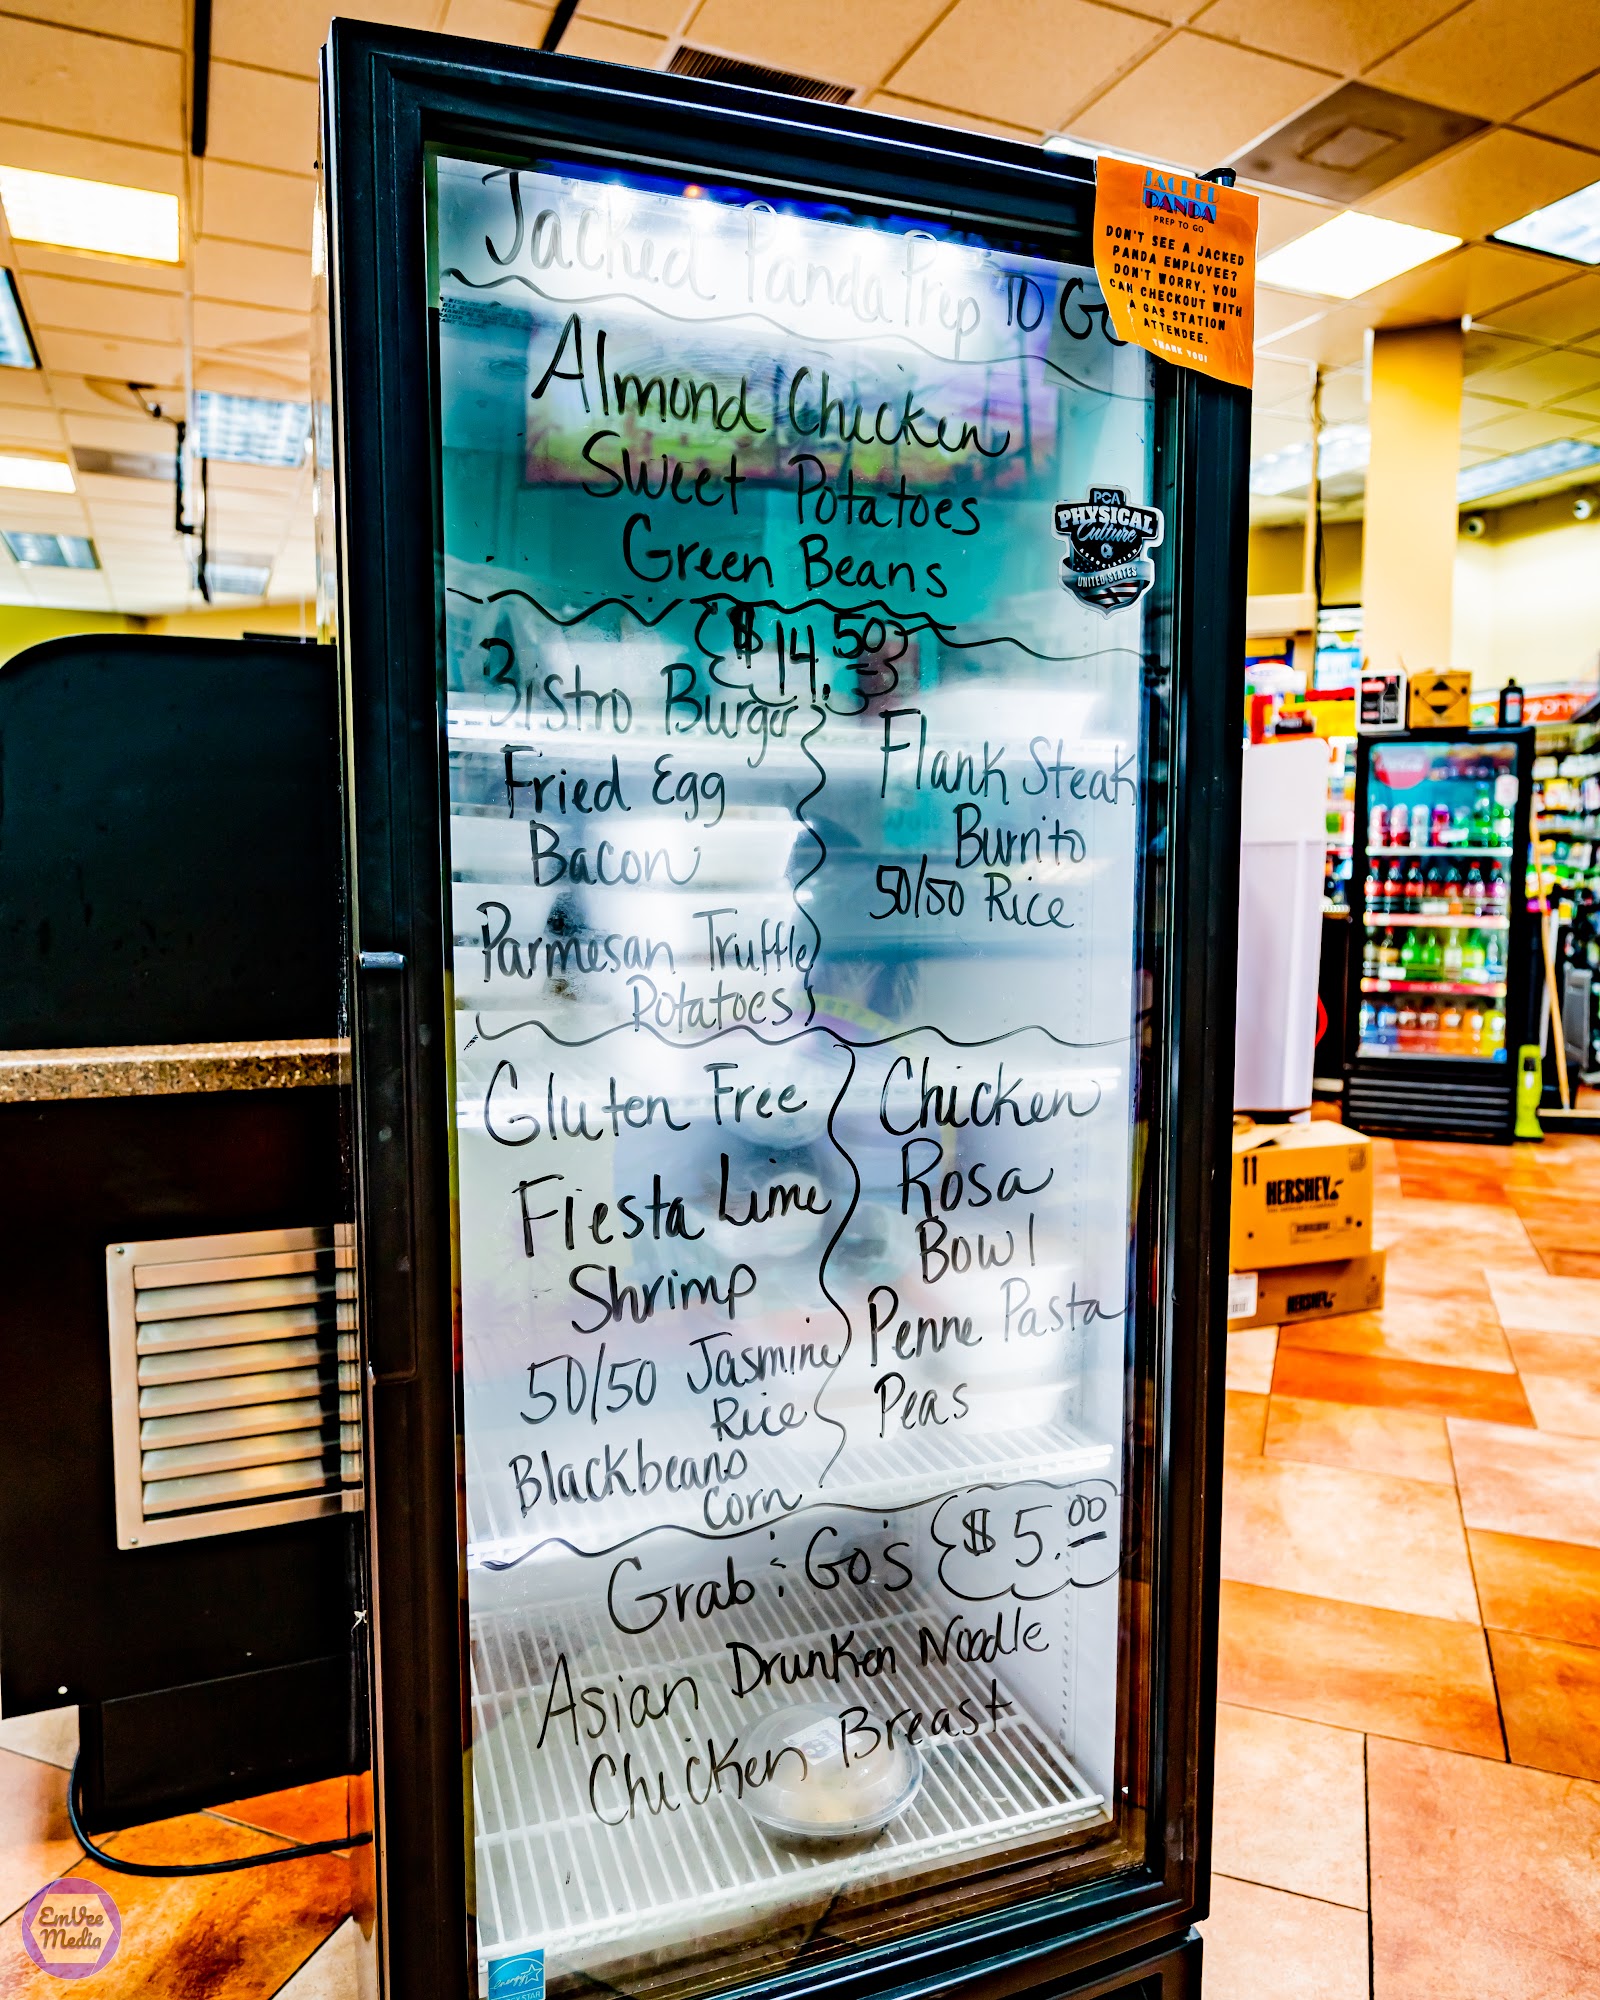 Jacked Panda Prep TO GO
Almond Chicken
Sweet Potatoes
Green Beans
$14.50
Bistro Burger
Fried Egg
Bacon
Parmesan Truffle
Potatoes
Flank Steak
Burrito
50/50 Rice
Gluten Free
Fiesta Lime
Shrimp
50/50 Jasmine
Rice
Blackbeans
Corn
Chicken
Rosa
Bowl
Penne Pasta
Peas
Grab & Go's $5.00
Asian Drunken Noodle
Chicken Breast
JACKED
PANDA
PREP TO GO
DON'T SEE A JACKED
PANDA EMPLOYEE?
DON'T WORRY, YOU
CAN CHECKOUT WITH
A GAS STATION
ATTENDEE.
THANK YOU!
PCA
PHYSICAL
Culture
ASSOCIATION
UNITED STATES
HERSHEY
HERSHEY
EmVee
Media
energy